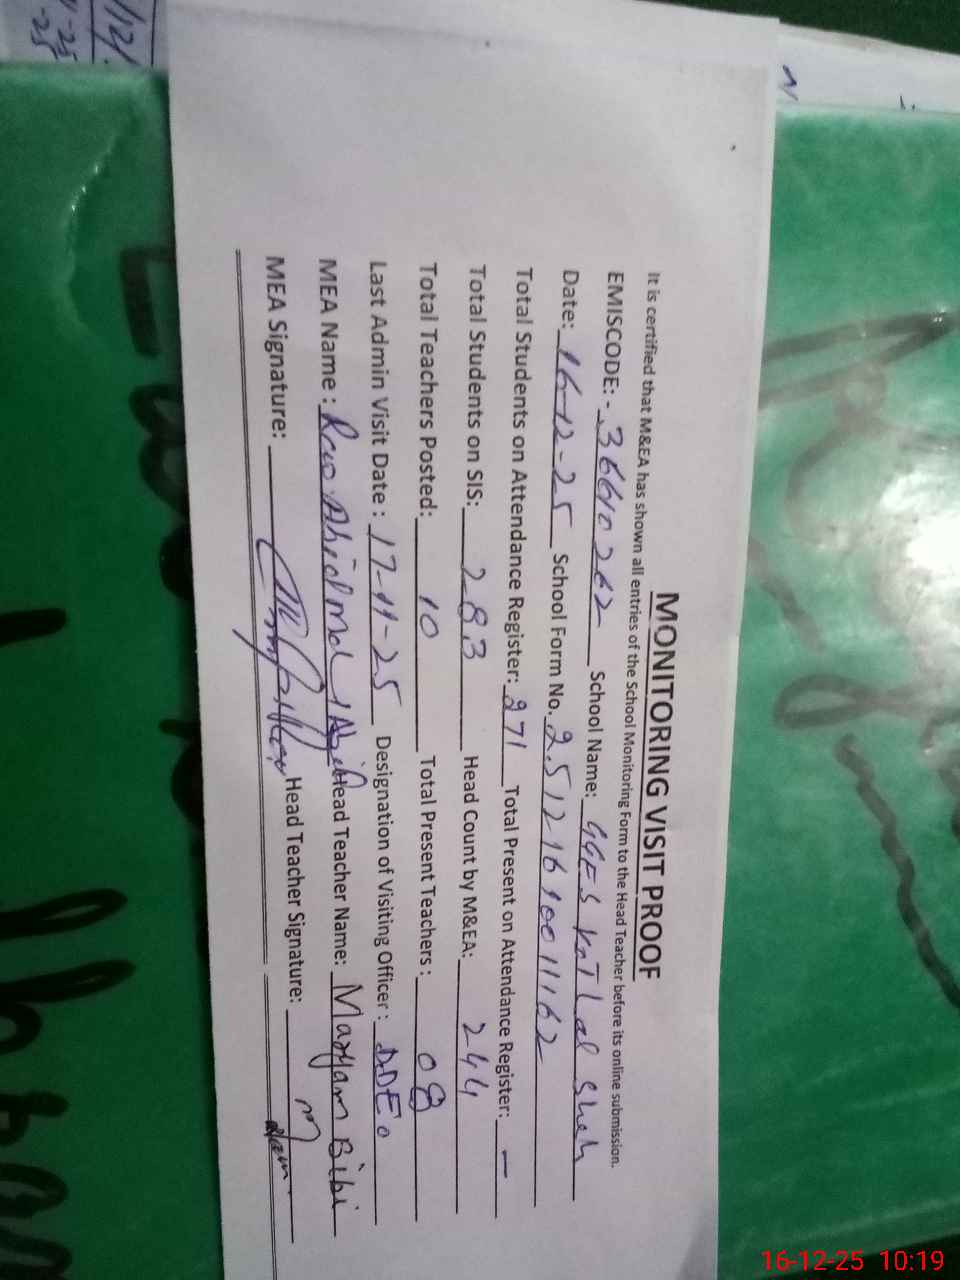 MONITORING VISIT PROOF
It is certified that M&EA has shown all entries of the School Monitoring Form to the Head Teacher before its online submission.
EMISCODE: - 36610262 School Name: GGES Kot Lal Shah
Date: 16-12-25 School Form No. 2512161001162
Total Students on Attendance Register: 271 Total Present on Attendance Register: —
Total Students on SIS: 283 Head Count by M&EA: 244
Total Teachers Posted: 10 Total Present Teachers: 08
Last Admin Visit Date : 17-11-25 Designation of Visiting Officer : DDEO
MEA Name : Rao Abid Head Teacher Name: Maryam Bibi
MEA Signature: Head Teacher Signature:
16-12-25 10:19